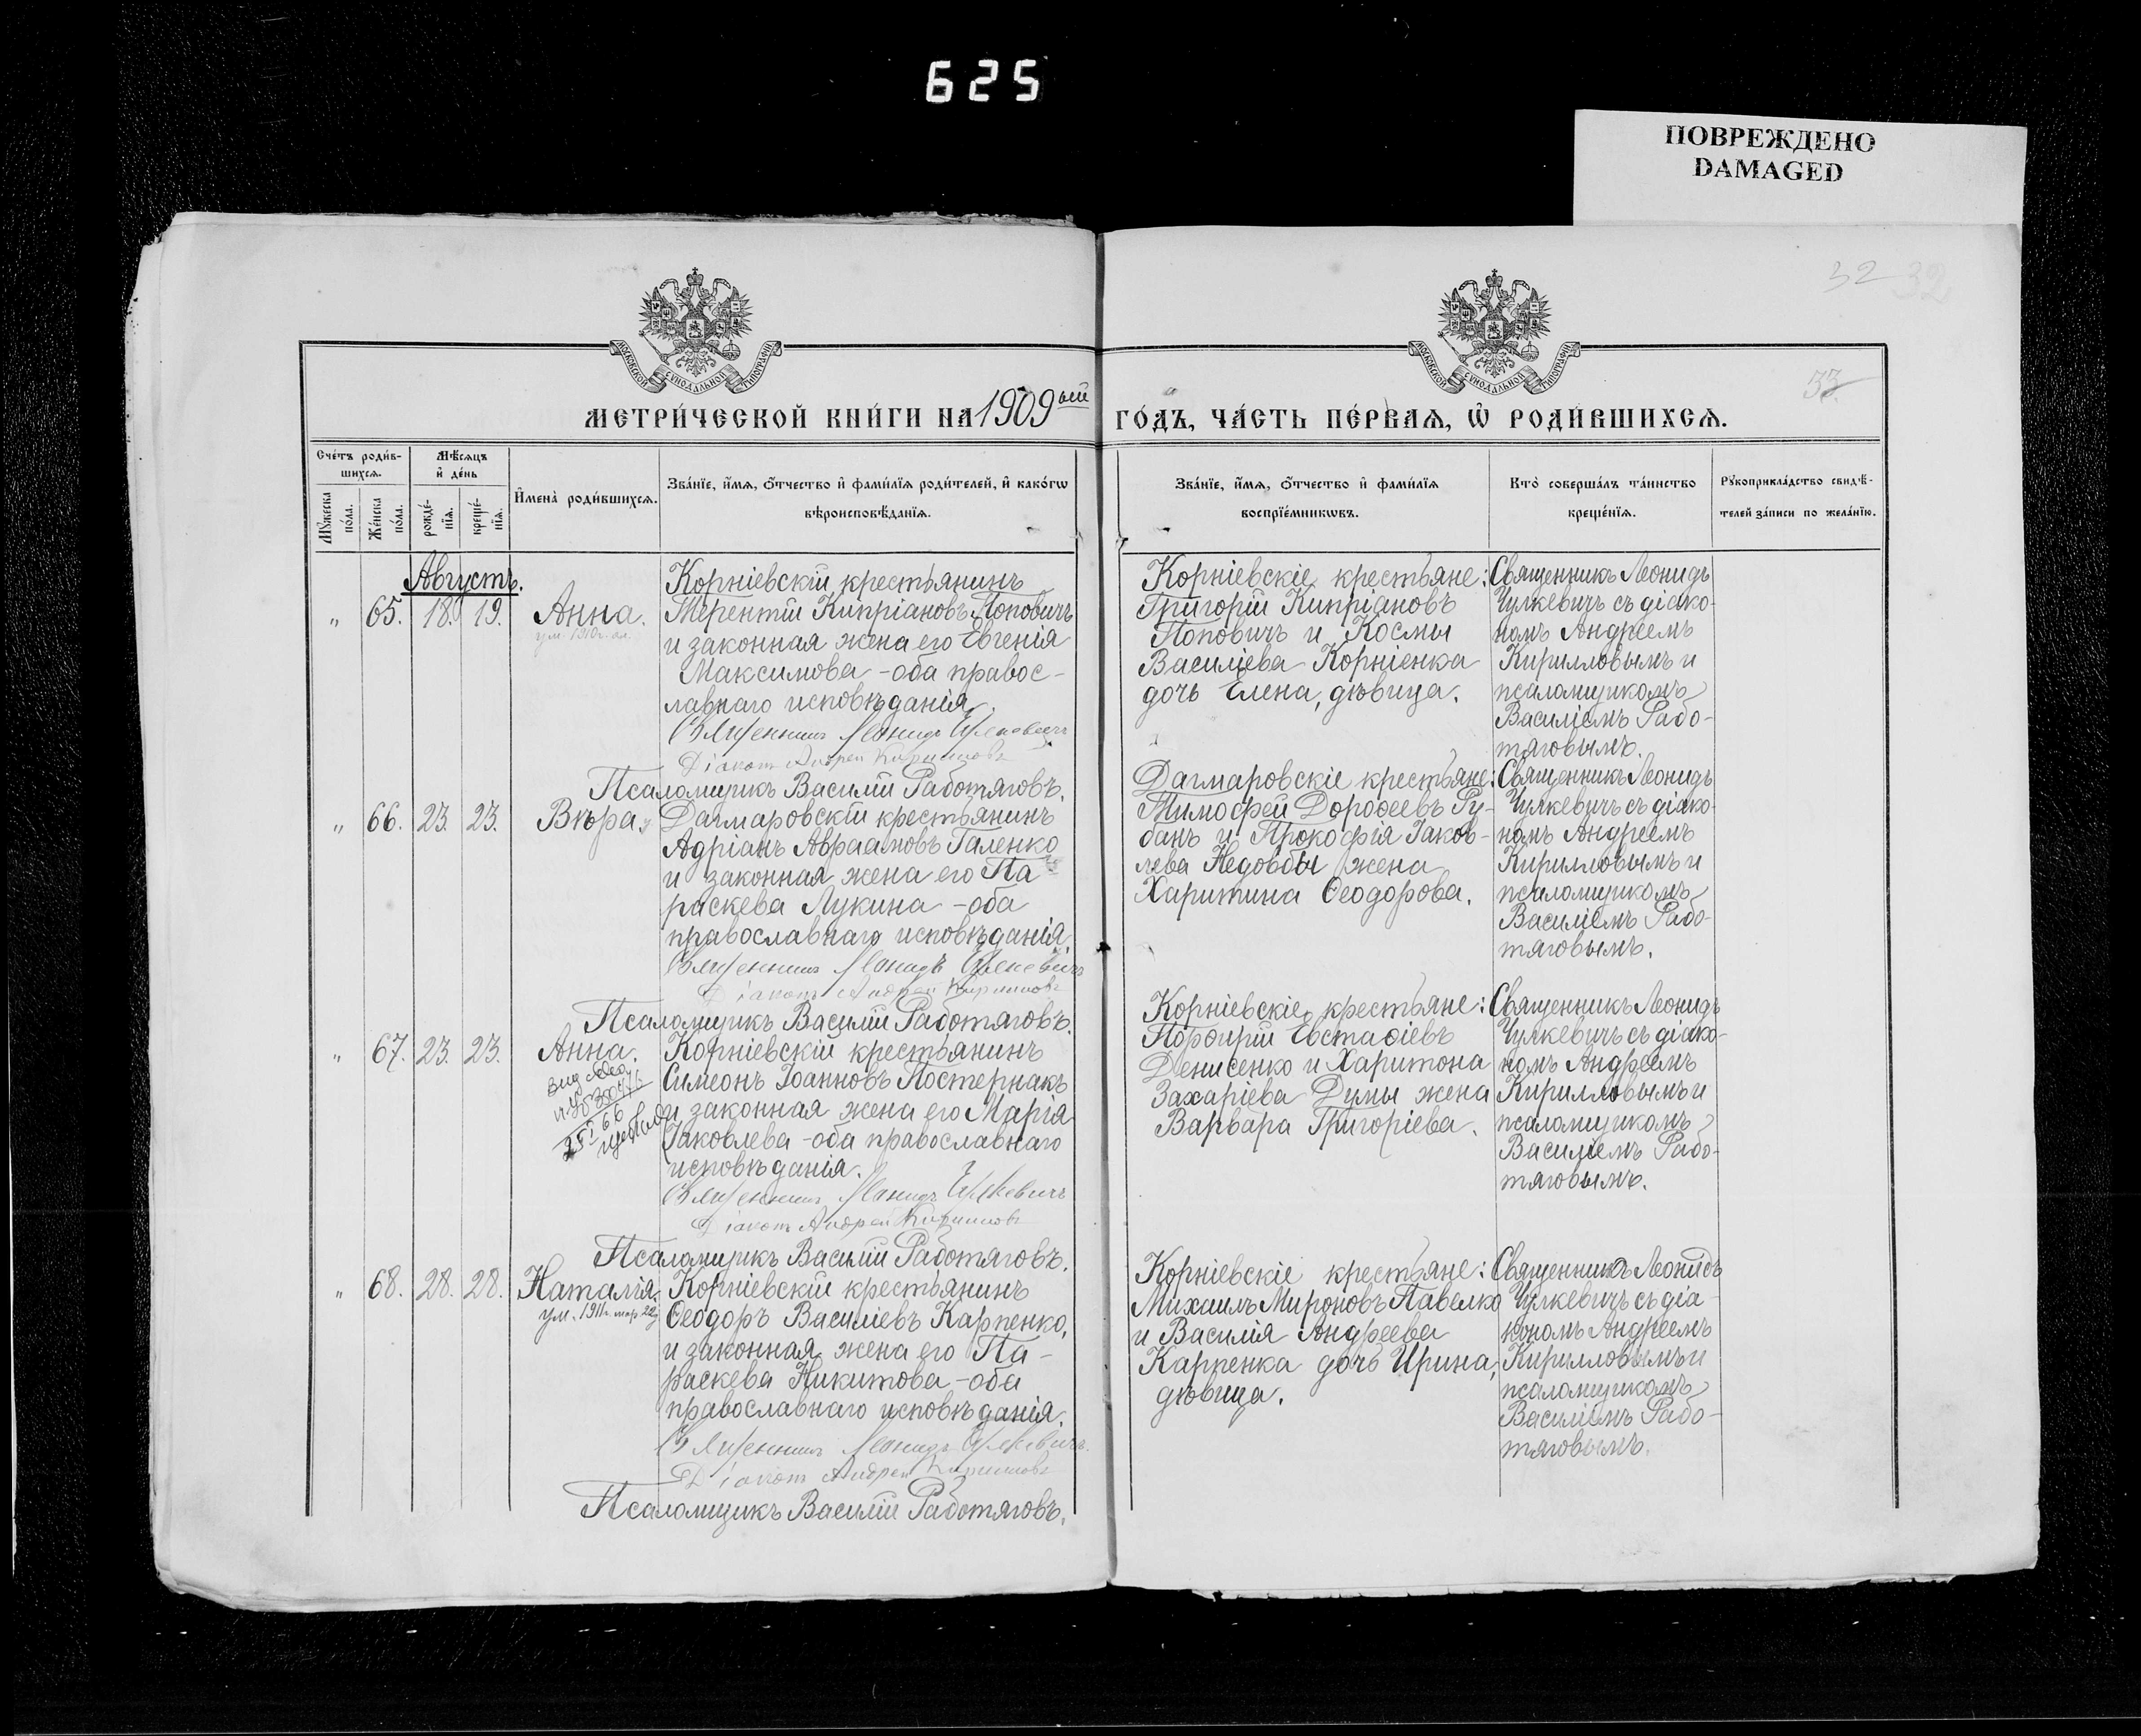 625
ПОВРЕЖДЕНО
DAMAGED
32 32
33
МОСКОВСКОЙ СѴНОДАЛЬНОЙ ТИПОГРАФІИ
МОСКОВСКОЙ СѴНОДАЛЬНОЙ ТИПОГРАФІИ
МЕТРИ́ЧЕСКОЙ КНИ́ГИ НА 1909ый ГО́ДЪ, ЧА́СТЬ ПЕ́РВАѦ, Ѡ҆ РОДИ́ВШИХСѦ.
Сче́тъ роди́в-
шихсѧ.
Мꙋ́жеска по́ла.
Же́нска по́ла.
Мѣ́сѧцъ
и҆ де́нь
рожде́-
нїѧ.
креще́-
нїѧ.
И҆мена̀ роди́вшихсѧ.
Зва́нїе, и҆́мѧ, ѻ҆́тчество и҆ фами́лїѧ роди́телей, и҆ како́гѡ
вѣроисповѣ́данїѧ.
Зва́нїе, и҆́мѧ, ѻ҆́тчество и҆ фами́лїѧ
воспрїе́мникѡвъ.
Кто̀ соверша́лъ та́инство
креще́нїѧ.
Рꙋкоприкла́дство свидѣ́-
телей за́писи по жела́нїю.
Августъ.
" 65. 18. 19. Анна.
ум. 1910 г.
Корніевскій крестьянинъ
Терентій Кипріановъ Поповичъ
и законная жена его Евгенія
Максимова - оба правос-
лавнаго исповѣданія.
Священникъ Леонидъ Чулкевичъ
Діаконъ Андрей Кирилловъ
Псаломщикъ Василій Работяговъ.
Корніевскіе крестьяне:
Григорій Кипріановъ
Поповичъ и Космы
Василіева Корніенка
дочь Елена, дѣвица.
Священникъ Леонидъ
Чулкевичъ съ діако-
номъ Андреемъ
Кирилловымъ и
псаломщикомъ
Василіемъ Рабо-
тяговымъ.
" 66. 23. 23. Вѣра.
Дагмаровскій крестьянинъ
Адріанъ Авраамовъ Галенко
и законная жена его Па-
раскева Лукина - оба
православнаго исповѣданія.
Священникъ Леонидъ Чулкевичъ
Діаконъ Андрей Кирилловъ
Псаломщикъ Василій Работяговъ.
Дагмаровскіе крестьяне:
Тимофей Дороѳеевъ Ру-
банъ и Прокофія Іаков-
лева Недовбы жена
Харитина Ѳеодорова.
Священникъ Леонидъ
Чулкевичъ съ діако-
номъ Андреемъ
Кирилловымъ и
псаломщикомъ
Василіемъ Рабо-
тяговымъ.
" 67. 23. 23. Анна.
Корніевскій крестьянинъ
Симеонъ Іоанновъ Постернакъ
и законная жена его Марія
Іаковлева - оба православнаго
исповѣданія.
Священникъ Леонидъ Чулкевичъ
Діаконъ Андрей Кирилловъ
Псаломщикъ Василій Работяговъ.
Корніевскіе крестьяне:
Порфирій Евстафіевъ
Денисенко и Харитона
Захаріева Думы жена
Варвара Григоріева.
Священникъ Леонидъ
Чулкевичъ съ діако-
номъ Андреемъ
Кирилловымъ и
псаломщикомъ
Василіемъ Рабо-
тяговымъ.
" 68. 28. 28. Наталія.
ум. 1911 г. мар 22
Корніевскій крестьянинъ
Ѳеодоръ Василіевъ Карпенко,
и законная жена его Па-
раскева Никитова - оба
православнаго исповѣданія.
Священникъ Леонидъ Чулкевичъ
Діаконъ Андрей Кирилловъ
Псаломщикъ Василій Работяговъ.
Корніевскіе крестьяне:
Михаилъ Мироновъ Павелко
и Василія Андреева
Карпенка дочь Ирина,
дѣвица.
Священникъ Леонидъ
Чулкевичъ съ діа-
кономъ Андреемъ
Кирилловымъ и
псаломщикомъ
Василіемъ Рабо-
тяговымъ.